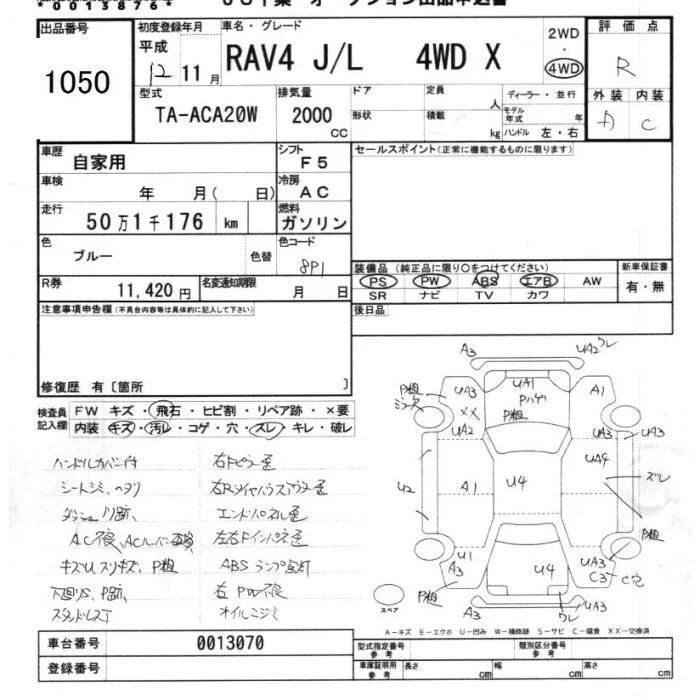 00138764
出品番号
1050
初度登録年月
平成
12 11月
車名・グレード
RAV4 J/L 4WD X
2WD
・
4WD
評価点
R
外装 内装
A C
型式
TA-ACA20W
排気量
2000
CC
ドア
形状
定員
人
積載
kg
ディーラー・並行
モデル
年式 年
ハンドル 左・右
車歴
自家用
シフト
F5
車検
年 月( 日)
冷房
AC
走行
50万1千176 km
燃料
ガソリン
色
ブルー
色替
色コード
8P1
R券
11,420円
名変通知期限
月 日
セールスポイント(正常に機能するものに限ります)
装備品(純正品に限り○をつけてください)
PS PW ABS エアB AW
SR ナビ TV カワ
新車保証書
有・無
後日品
注意事項申告欄(不具合内容等は具体的に記入して下さい)
修復歴 有〔箇所 〕
検査員
記入欄
FW キズ・飛石・ヒビ割・リペア跡・×要
内装 キズ・汚レ・コゲ・穴・スレ・キレ・破レ
ハンドルカバー付
シートシミ、ヘタリ
ダッシュ跡、
AC不良、ACルーバー
キズU、スリキズ、P粗
下廻りS、P跡、
スタッドレスT
右Fピラー歪
右Rタイヤハウスアウター歪
エンドパネル歪
左右Fインパネ歪
ABSランプ点灯
右PW不良
オイルニジミ
A3
UA2 ワレ
P粗
UA3
UA1
Pハゲ
A1
XX
P粗
UA2
UA3
UA3
UA9
U2
A1
U4
ズレ
P粗
U1
A3
UA3
C3 C穴
U4
P粗
A3
ワレ
UA3
スペア
A-キズ E-エクボ U-凹み W-補修跡 S-サビ C-腐食 XX-交換済
車台番号
0013070
登録番号
型式指定番号
参考
類別区分番号
参考
車庫証明用
参考
長さ cm 幅 cm 高さ cm